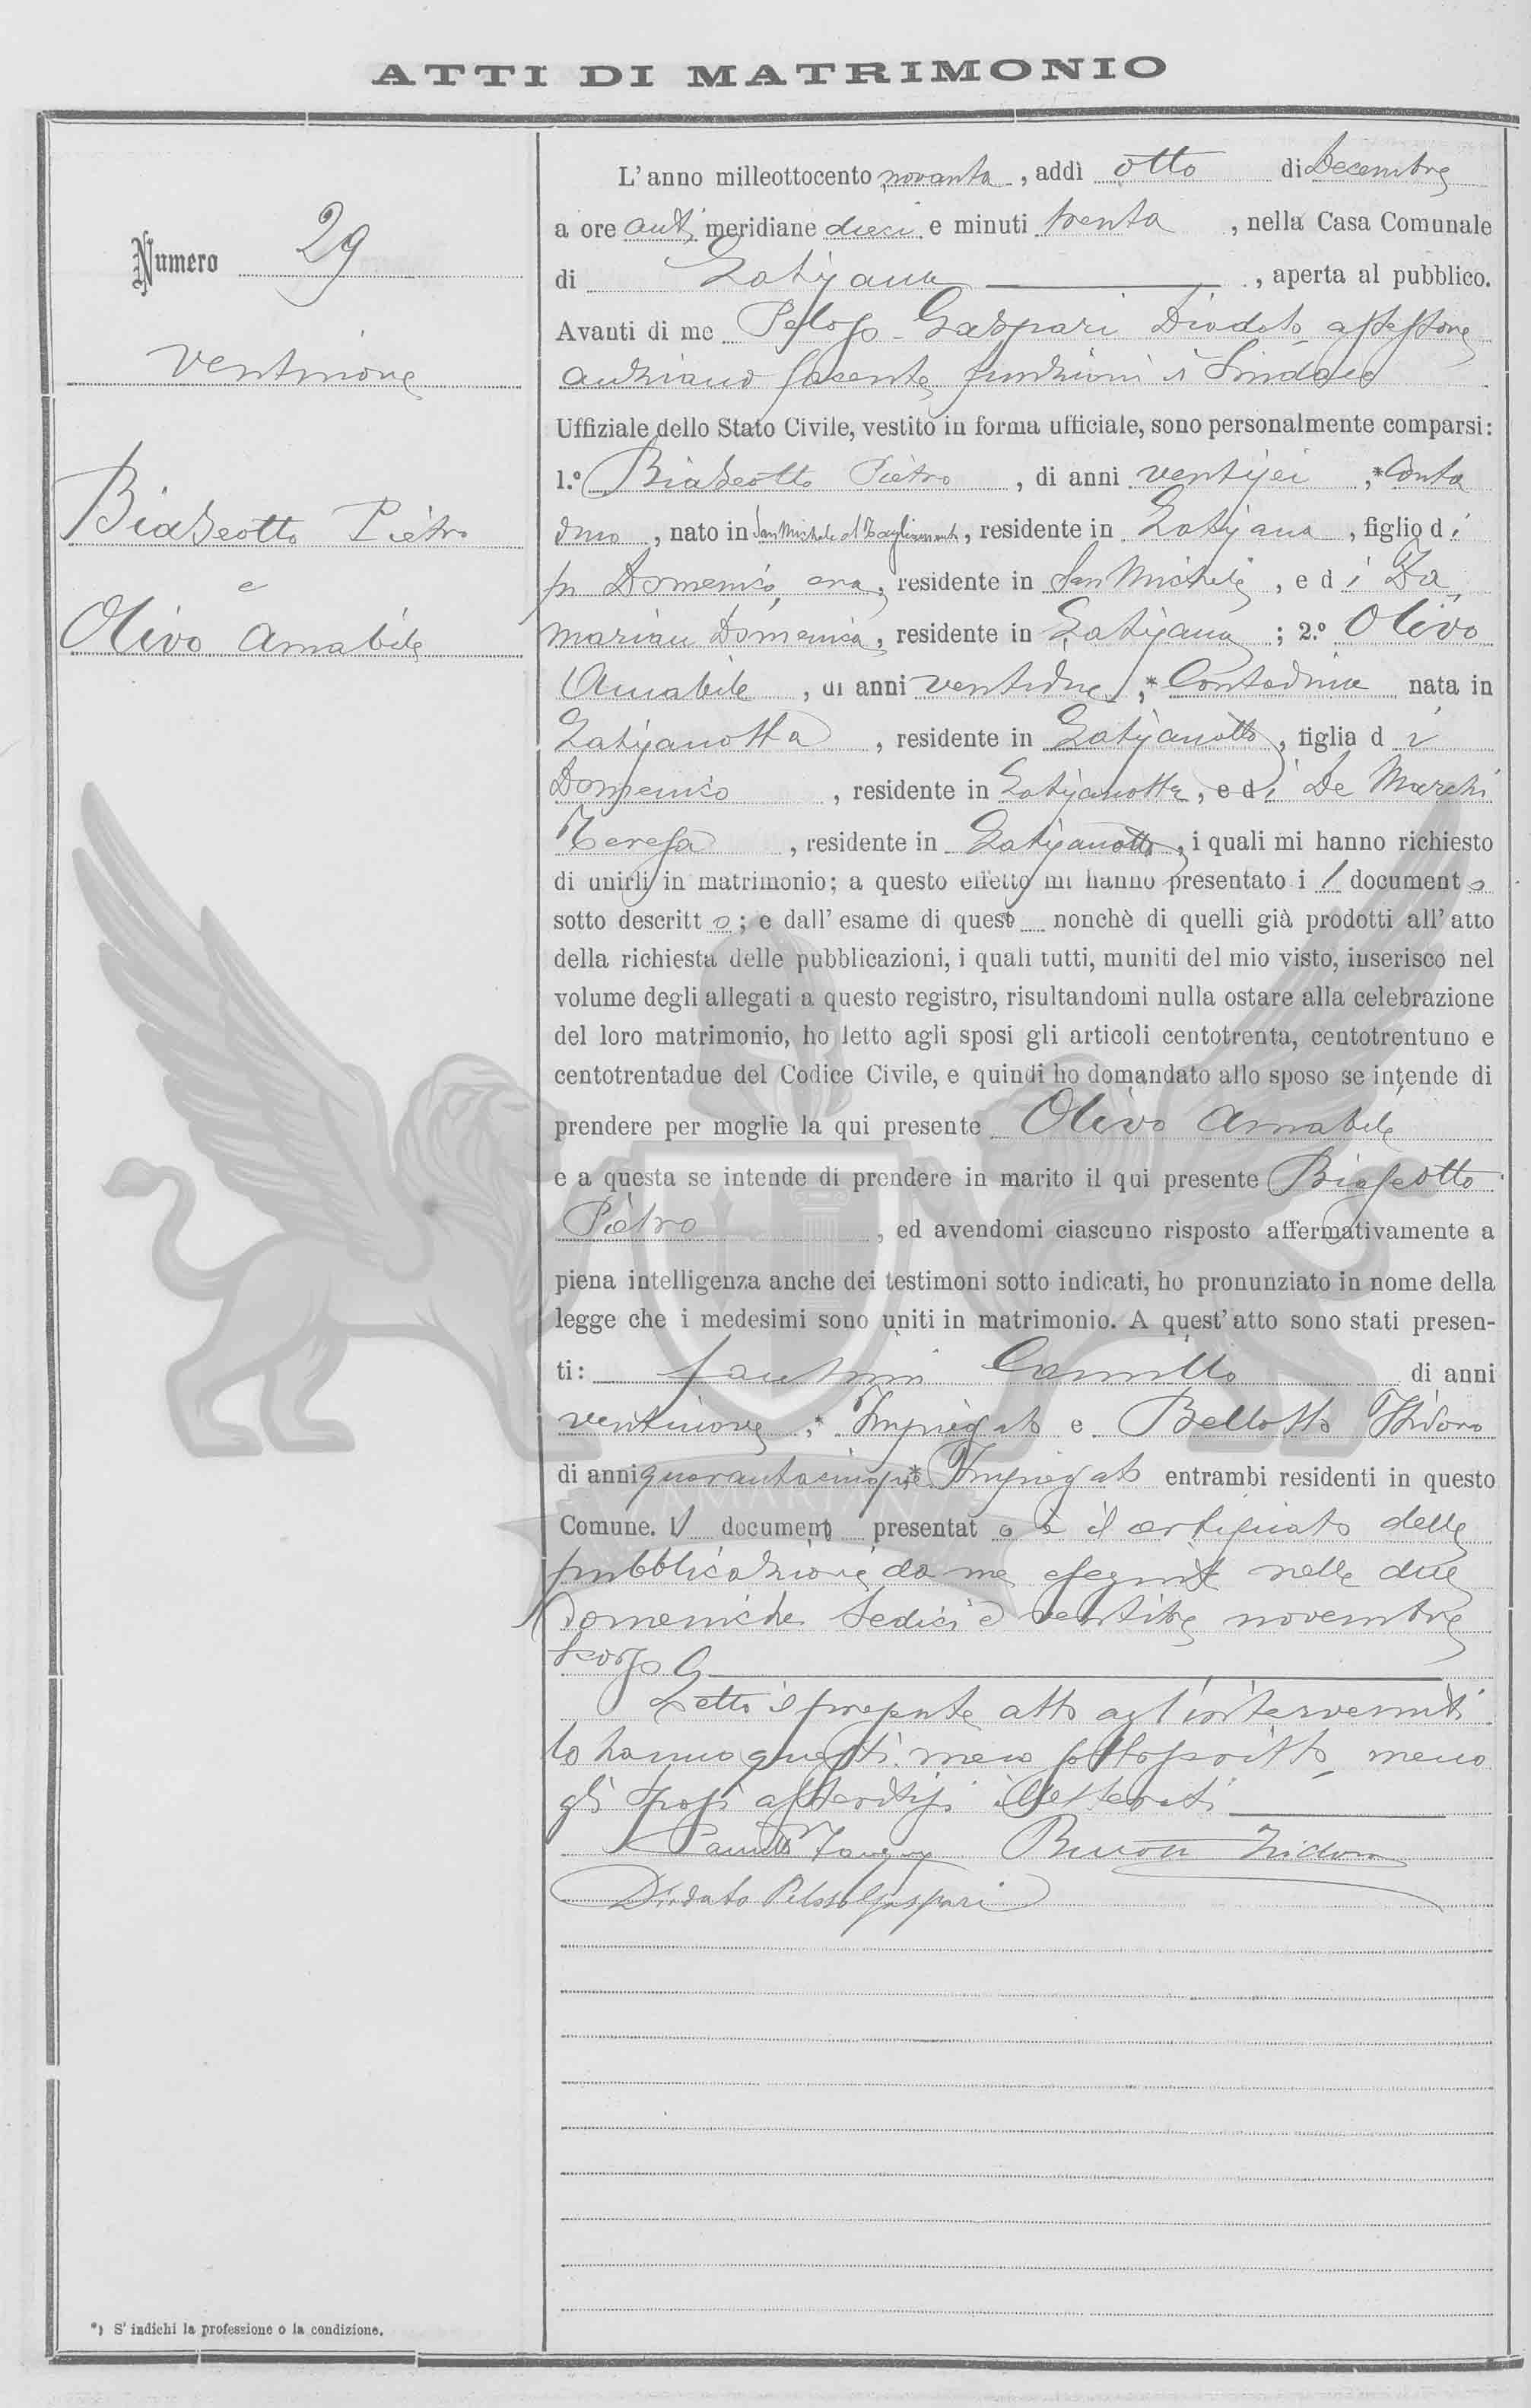 ATTI DI MATRIMONIO
Numero 29
ventinove
Biaseotto Pietro
e
Olivo Amabile
L'anno milleottocento novanta, addì otto di Decembre
a ore ant meridiane dieci e minuti trenta, nella Casa Comunale
di Latisana, aperta al pubblico.
Avanti di me Peloso-Gaspari Diodato assessore
anziano facente funzioni di Sindaco
Uffiziale dello Stato Civile, vestito in forma ufficiale, sono personalmente comparsi:
1.º Biaseotto Pietro, di anni ventisei, *Conta
dino, nato in San Michele al Tagliamento, residente in Latisana, figlio di
fu Domenico, era, residente in San Michele, e di Da
marian Domenica, residente in Latisana; 2.º Olivo
Amabile, di anni ventidue, *Contadina nata in
Latisanotta, residente in Latisanotta, figlia di
Domenico, residente in Latisanotta, e di De Marchi
Teresa, residente in Latisanotta, i quali mi hanno richiesto
di unirli in matrimonio; a questo effetto mi hanno presentato i l documento
sotto descritto; e dall'esame di questo nonchè di quelli già prodotti all'atto
della richiesta delle pubblicazioni, i quali tutti, muniti del mio visto, inserisco nel
volume degli allegati a questo registro, risultandomi nulla ostare alla celebrazione
del loro matrimonio, ho letto agli sposi gli articoli centotrenta, centotrentuno e
centotrentadue del Codice Civile, e quindi ho domandato allo sposo se intende di
prendere per moglie la qui presente Olivo Amabile
e a questa se intende di prendere in marito il qui presente Biaseotto
Pietro, ed avendomi ciascuno risposto affermativamente a
piena intelligenza anche dei testimoni sotto indicati, ho pronunziato in nome della
legge che i medesimi sono uniti in matrimonio. A quest'atto sono stati presen-
ti: Camillo di anni
ventinove, * Impiegato e Bellotto Isidoro
di anni quarantacinque * Impiegato entrambi residenti in questo
Comune. Il documento presentato è il certificato delle
pubblicazioni da me eseguite nelle due
Domeniche sedici e ventitre novembre
scorso
Letto il presente atto agl'intervenuti
lo hanno questi meco sottoscritto meno
gli sposi asseritisi illetterati
Isidoro
Diodato Peloso Gaspari
*) S'indichi la professione o la condizione.